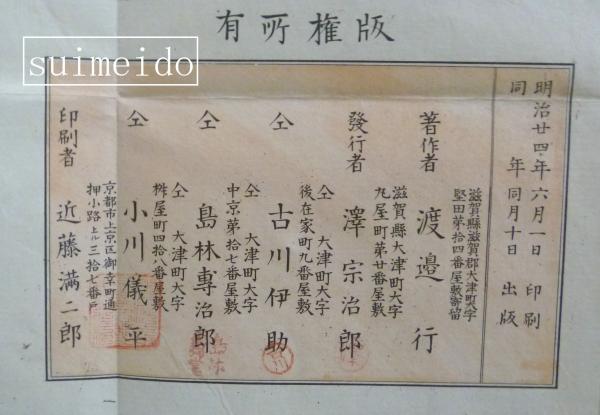 版權所有
suimeido
明治廿四年六月一日 印刷
同 年同月十日 出版
滋賀縣滋賀郡大津町大字
堅田第拾四番屋敷寄留
著作者 渡邉 行
滋賀縣大津町大字
丸屋町第廿番屋敷
發行者 澤 宗治郎
仝 大津町大字
後在家町九番屋敷
仝 古川伊助
仝 大津町大字
中京第拾七番屋敷
仝 島林専治郎
仝 大津町大字
桝屋町四拾八番屋敷
仝 小川儀平
京都市上京区御幸町通
押小路上ル三拾七番戸
印刷者 近藤満二郎